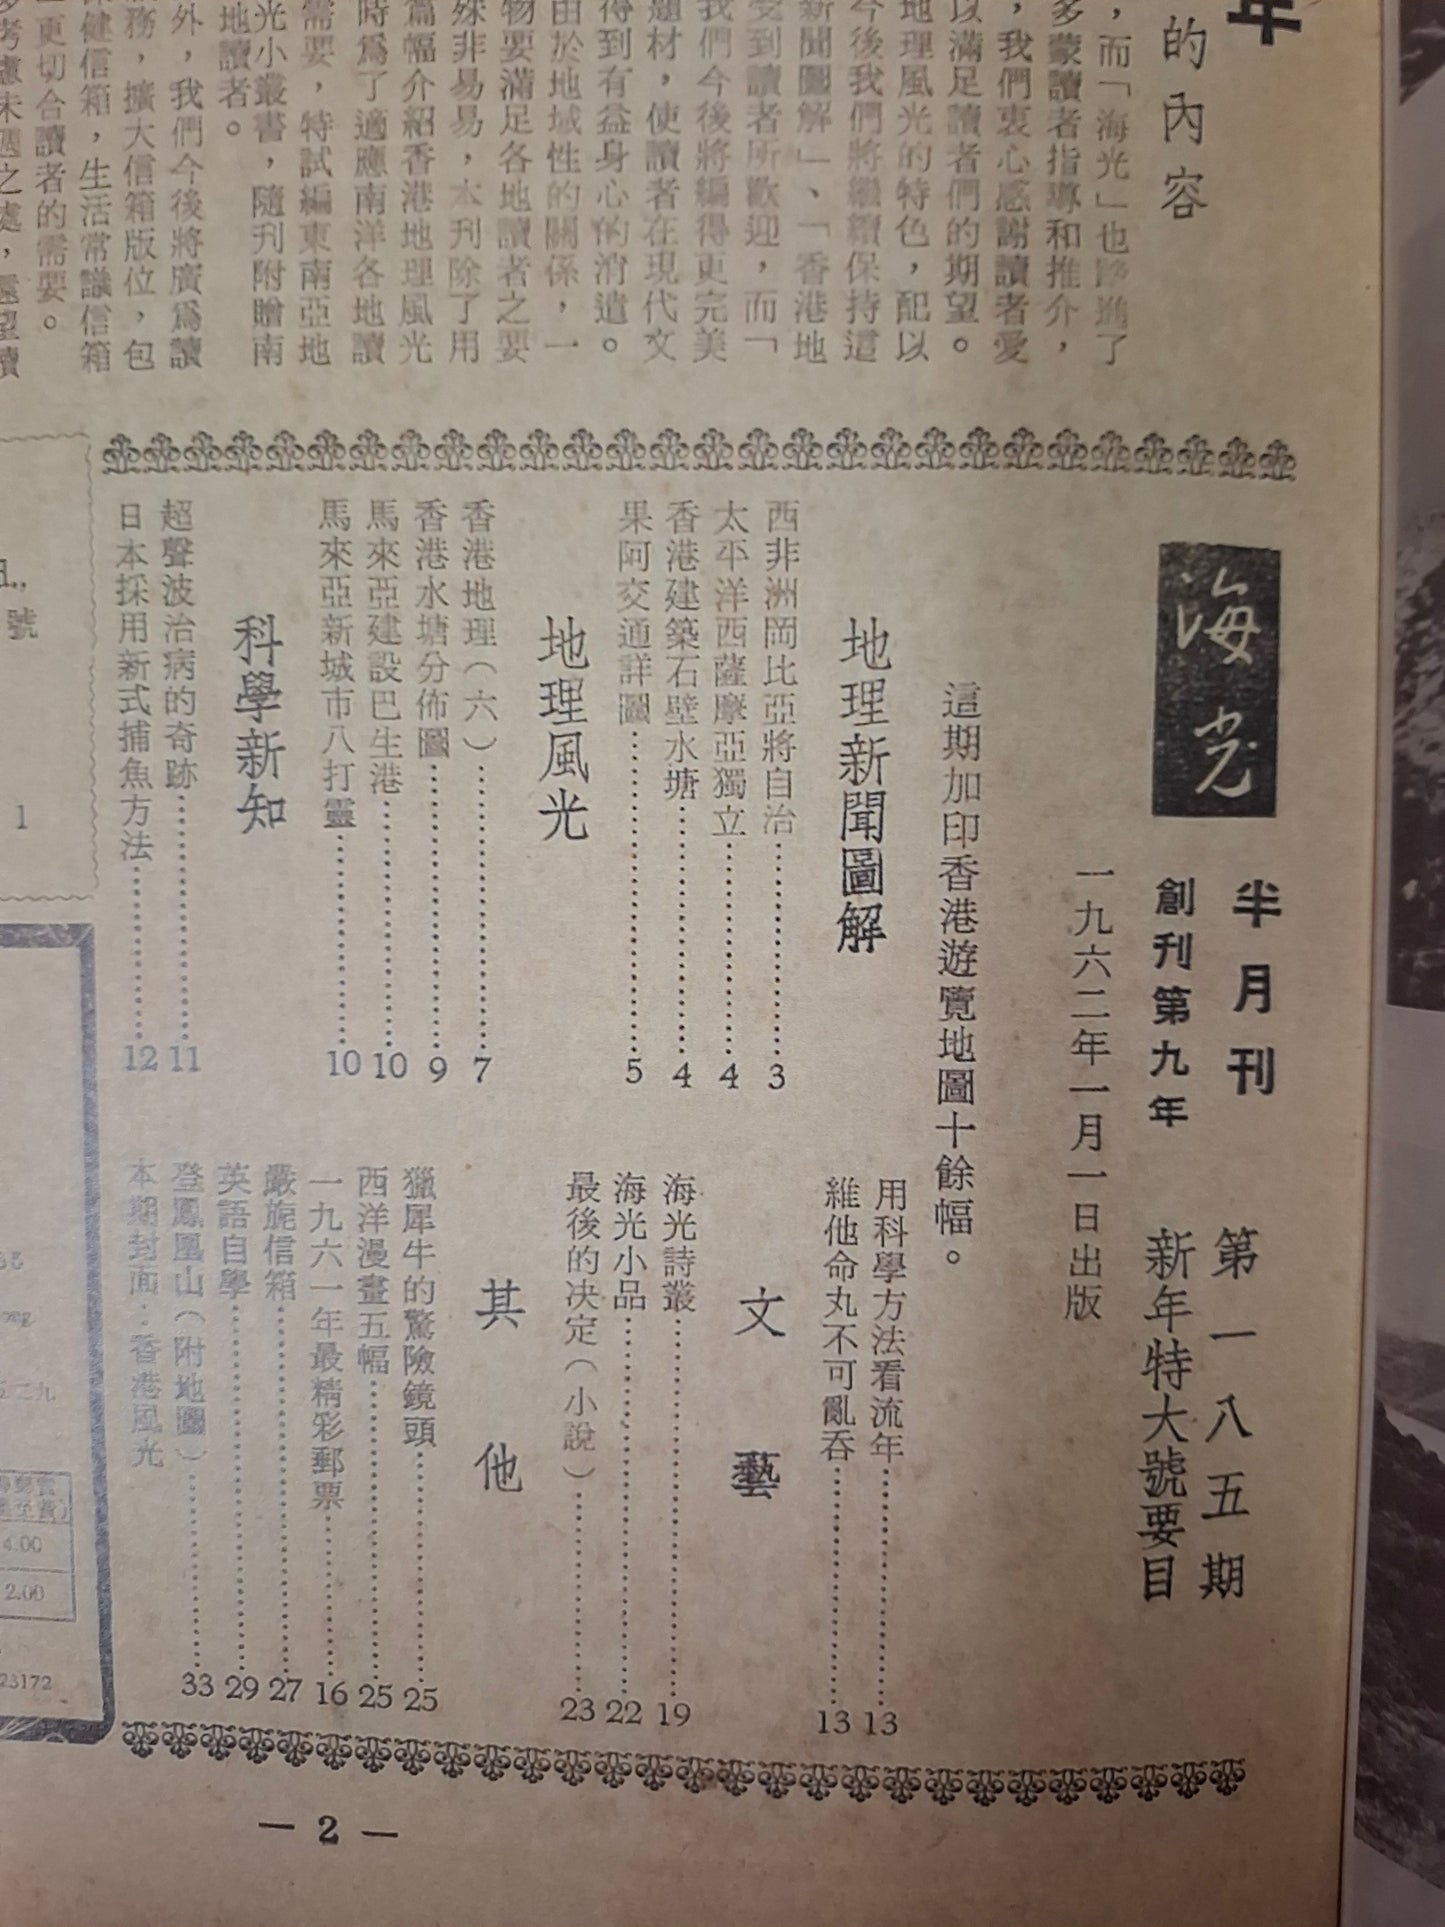 年
的內容
，而「海光」也踏進了
多蒙讀者指導和推介，
，我們衷心感謝讀者愛
以滿足讀者們的期望。
地理風光的特色，配以
今後我們將繼續保持這
新聞圖解」、「香港地
受到讀者所歡迎，而「
我們今後將編得更完美
題材，使讀者在現代文
得到有益身心的消遣。
由於地域性的關係，一
物要滿足各地讀者之要
殊非易易，本刊除了用
篇幅介紹香港地理風光
時爲了適應南洋各地讀
需要，特試編東南亞地
光小叢書，隨刊附贈南
地讀者。
外，我們今後將廣爲讀
服務，擴大信箱版位，包
保健信箱，生活常識信箱
更切合讀者的需要。
考慮未週之處，還望讀
海光
半月刊 第一八五期
創刊第九年 新年特大號要目
一九六二年一月一日出版
這期加印香港遊覽地圖十餘幅。
地理新聞圖解
西非洲岡比亞將自治 3
太平洋西薩摩亞獨立 4
香港建築石壁水塘 4
果阿交通詳圖 5
地理風光
香港地理（六） 7
香港水塘分佈圖 9
馬來亞建設巴生港 10
馬來亞新城市八打靈 10
科學新知
超聲波治病的奇跡 11
日本採用新式捕魚方法 12
用科學方法看流年 13
維他命丸不可亂吞 13
文藝
海光詩叢 19
海光小品 22
最後的決定（小說） 23
其他
獵犀牛的驚險鏡頭 25
西洋漫畫五幅 25
一九六一年最精彩郵票 16
嚴旋信箱 27
英語自學 29
登鳳凰山（附地圖） 33
本期封面：香港風光
號
1
4.00
2.00
23172
— 2 —